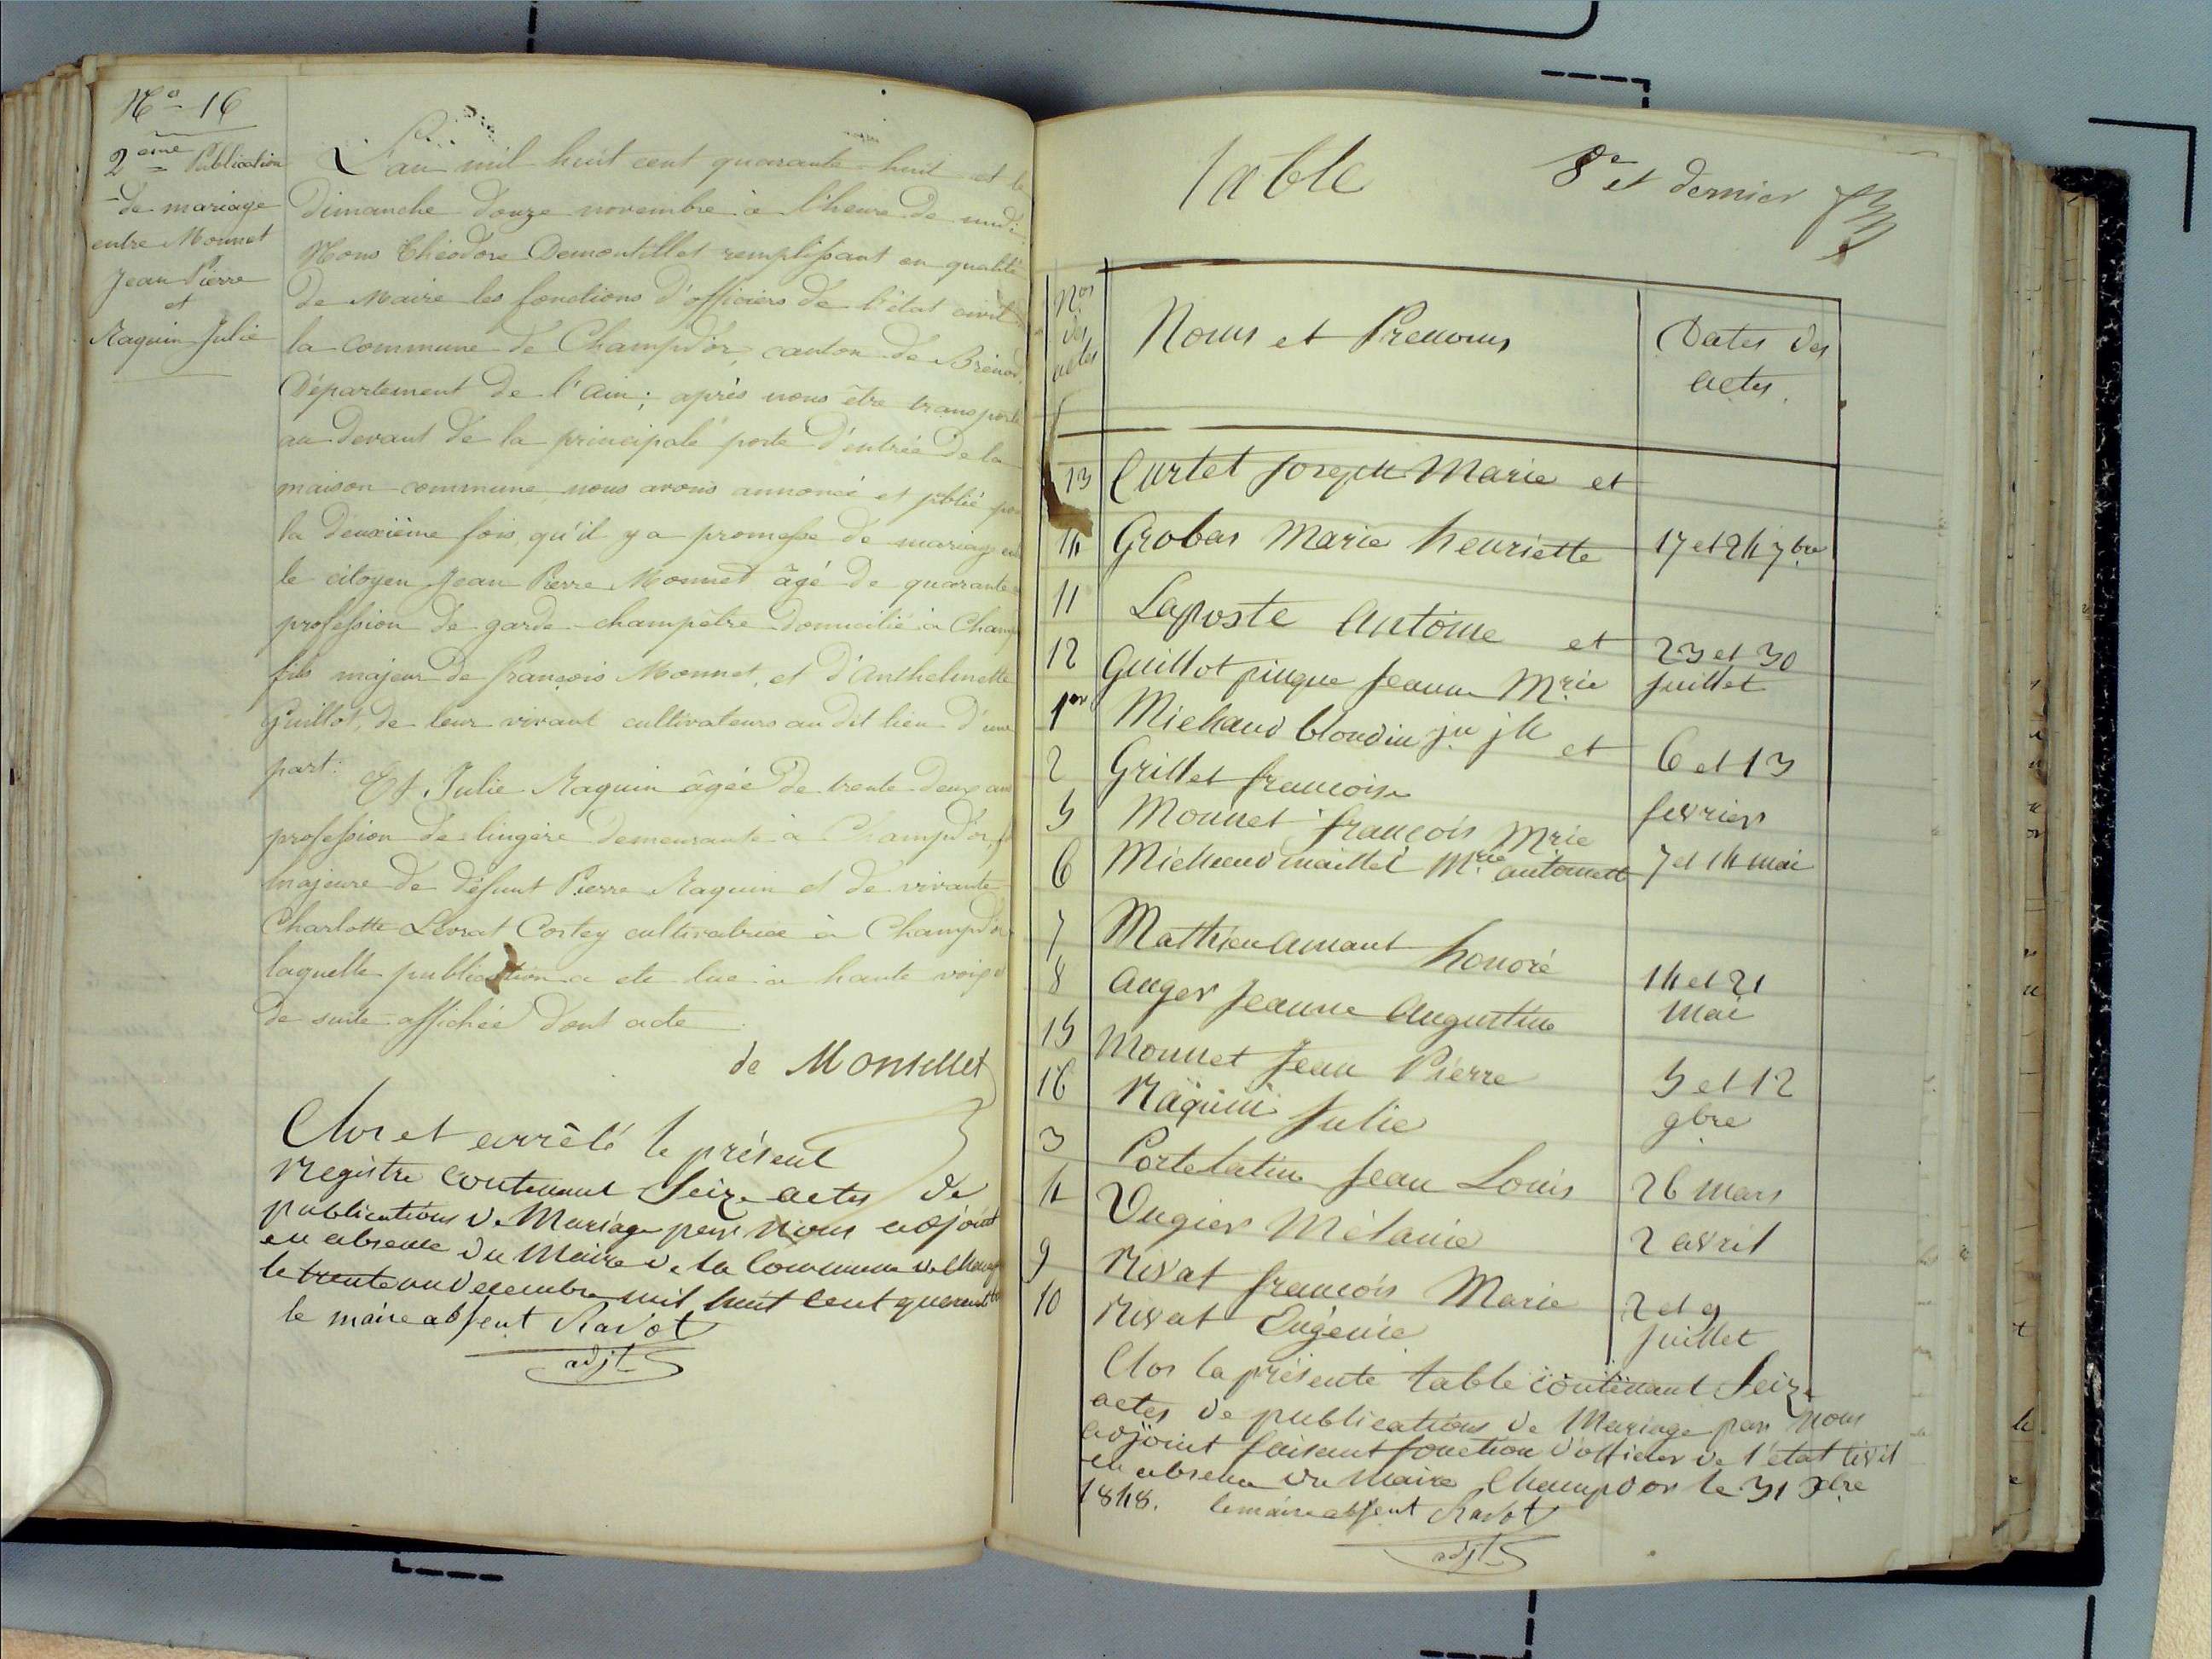 No 16
2ème Publication
de mariage
entre Monnet
Jean Pierre
et
Raquin Julie
L'an mil huit cent quarante huit et le
dimanche douze novembre à l'heure de midi
Nous Théodore Demontillet remplissant en qualité
de Maire les fonctions d'officiers de l'état civil
la commune de Champd'or, canton de Brénod
Département de l'Ain; après nous être transporté
au devant de la principale porte d'entrée de la
maison commune nous avons annoncé et publié
la deuxième fois, qu'il y a promesse de mariage
le citoyen Jean Pierre Monnet âgé de quarante
profession de garde-champêtre domicilié à Champ
fils majeur de françois Monnet, et d'Anthelmette
Guillot, de leur vivant cultivateurs au dit lieu d'une
part.
Et Julie Raquin âgée de trente deux ans
profession de lingère demeurante à Champd'or,
majeure de défunt Pierre Raquin et de vivante
Charlotte Levrat Cortey cultivatrice à Champd'or
laquelle publication a ete lue à haute voix
de suite affichée dont acte
de Montillet
Clos et arrêté le présent
Registre contenant Seize actes de
publications de Mariage par Nous adjoint
en absence du Maire de la Commune de Champ
le trente un decembre mil huit cent quarante
le maire absent Ravot
adjt
Table
8e et dernier
Nos
des
actes
Noms et Prenoms
Dates des
actes.
13 Curtet Joseph Marie et
14 Grobas Marie henriette 17 et 24 7bre
11 Laposte Antoine et 23 et 30
12 Guillot pingue Jeanne Mrie Juillet
1er Michaud blondin jn jh et 6 et 13
2 Grillet francoise
fevrier
5 Monnet françois Mrie
6 Michaud maillet Mrie antoinett 7 et 14 mai
7 Mathieu amant honoré
8 Auger Jeanne Augustine 14 et 21
mai
15 Monnet Jean Pierre 5 et 12
16 Raquin Julie 9bre
3 Portelatine Jean Louis 26 mars
4 Vugier Mélanie 2 avril
9 Rivat françois Marie 2 et 9
10 Rivat Eugénie Juillet
Clos la présente table contenant Seize
actes de publications de Mariage par Nous
adjoint faisant fonction d'officier de l'état Civil
en absence du Maire Champdor le 31 Xbre
1848. le maire absent Ravot
adjt